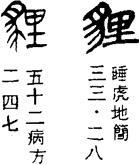 貍
睡虎地簡
三三·二八
貍
五十二病方
二四七